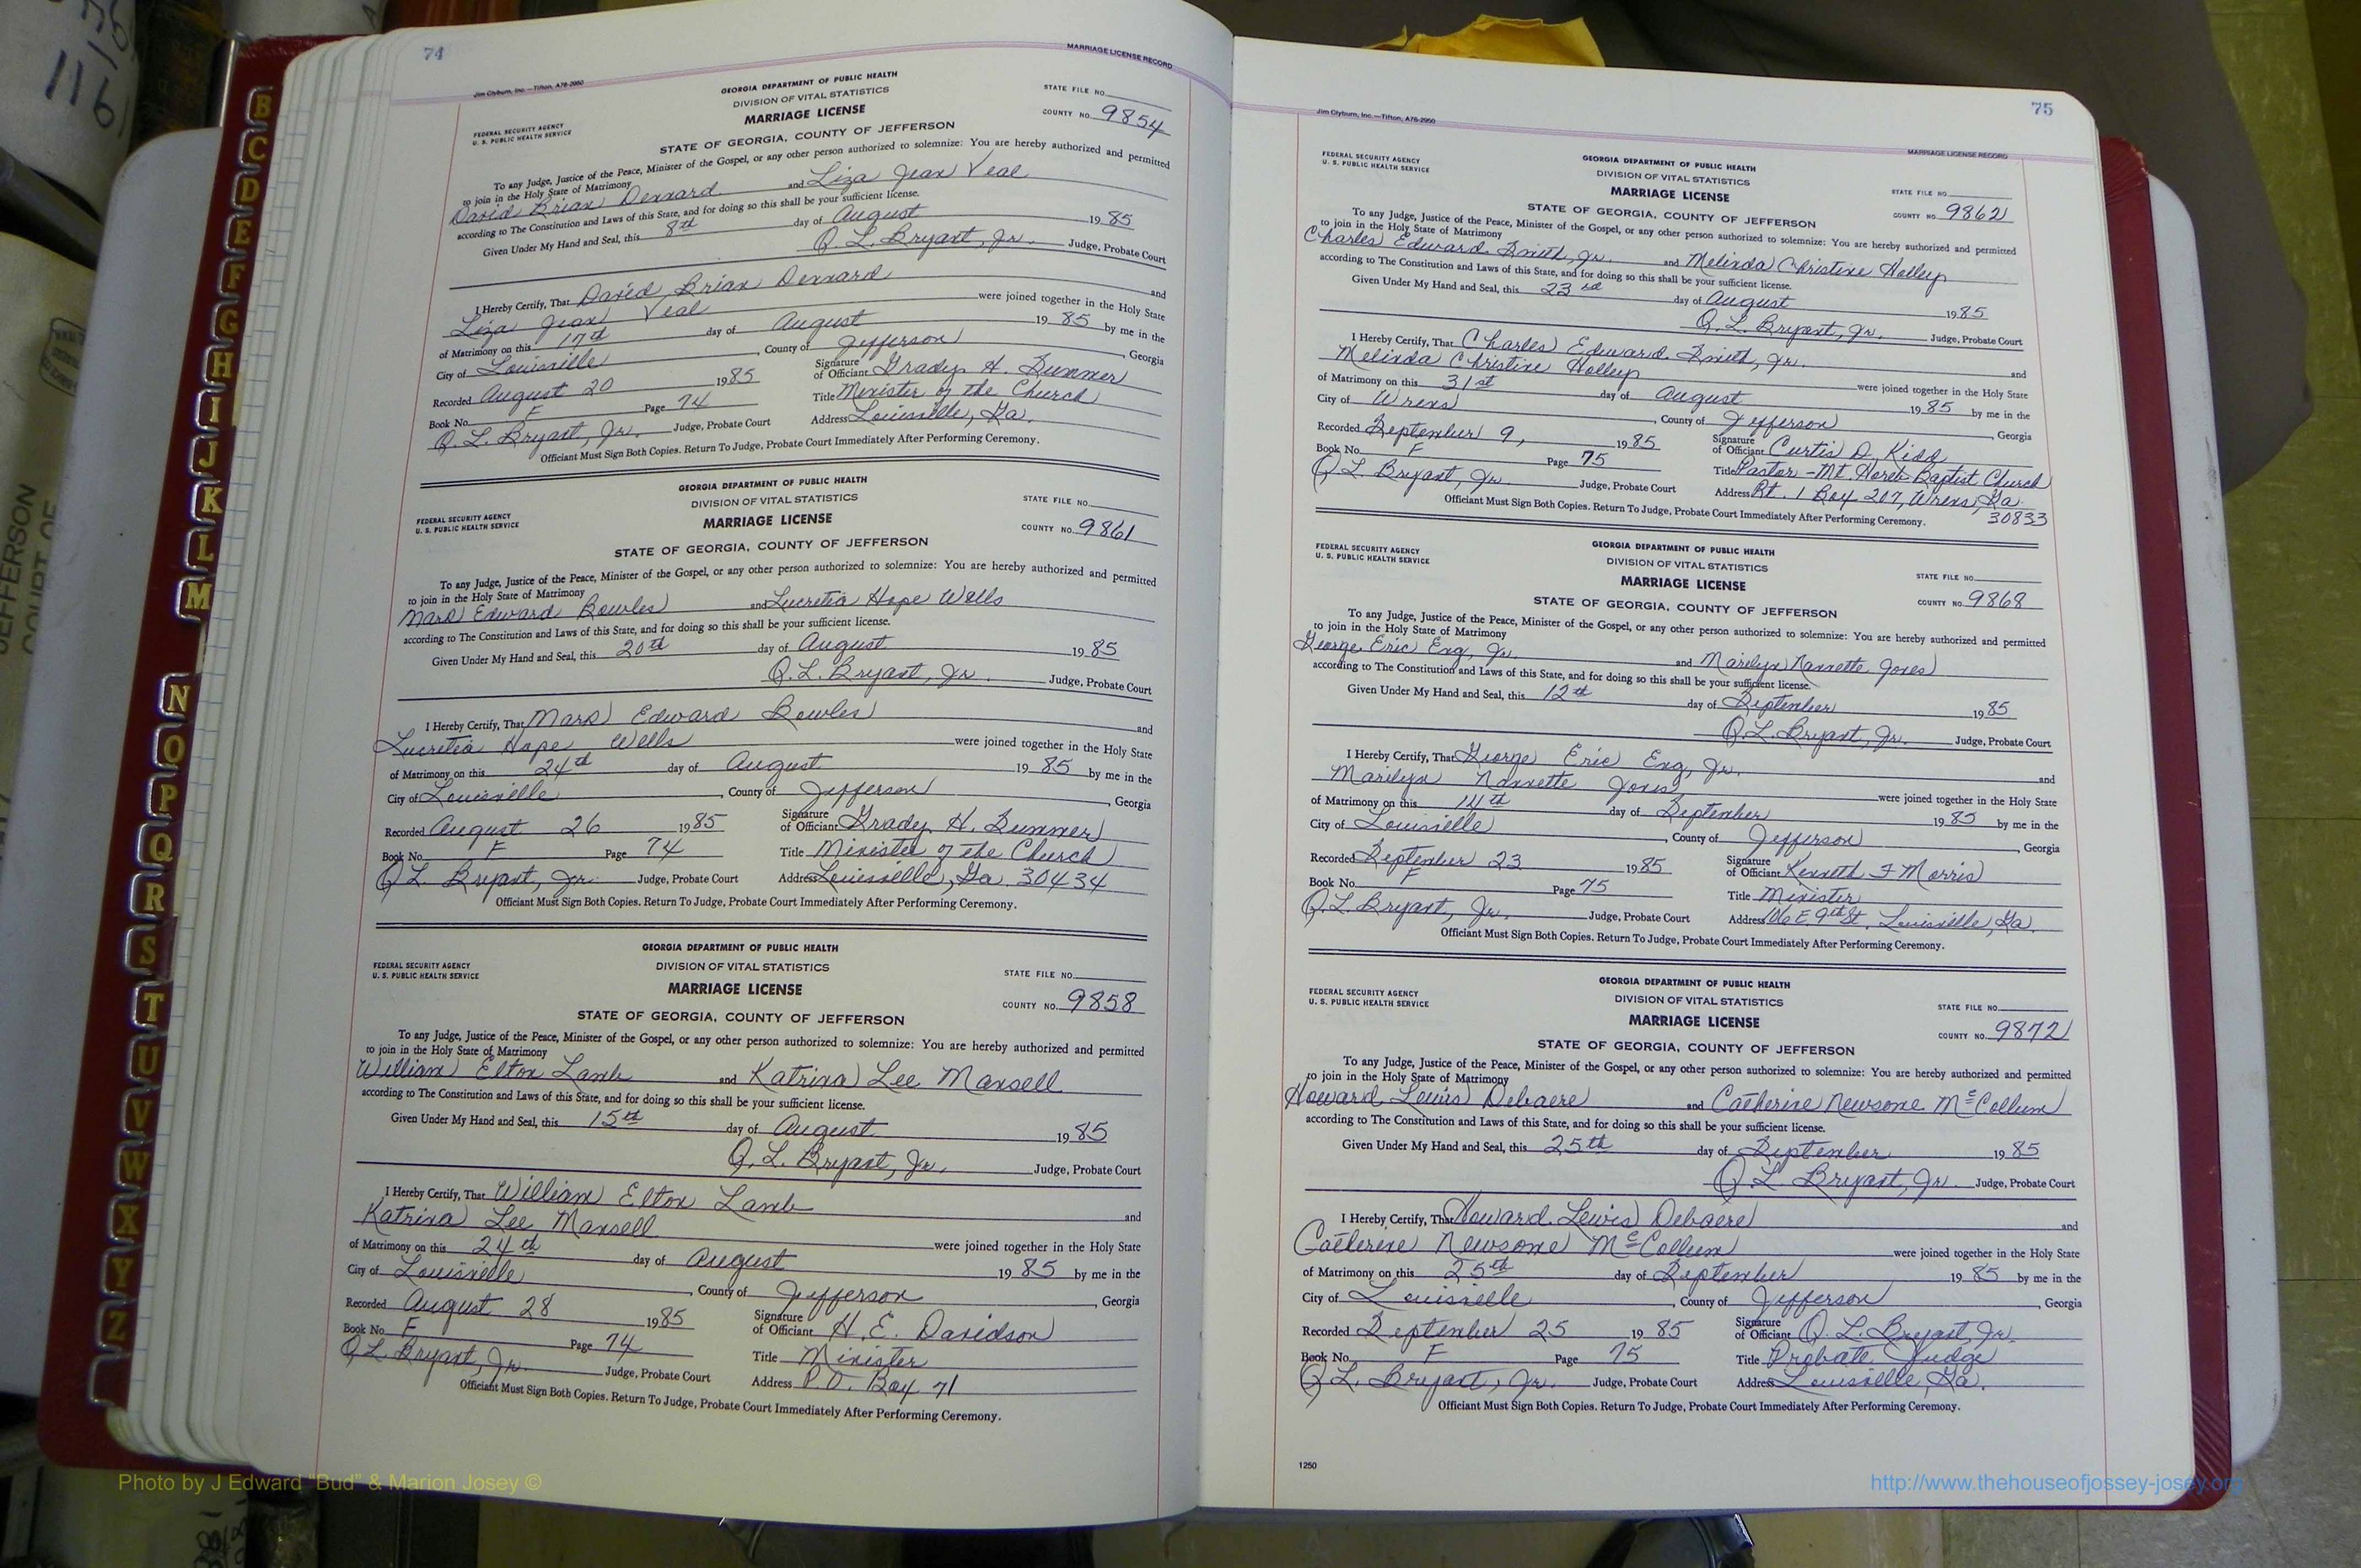 74
MARRIAGE LICENSE RECORD
Jim Clyburn, Inc.—Tifton, A76-2950
FEDERAL SECURITY AGENCY
U. S. PUBLIC HEALTH SERVICE
GEORGIA DEPARTMENT OF PUBLIC HEALTH
DIVISION OF VITAL STATISTICS
MARRIAGE LICENSE
STATE OF GEORGIA, COUNTY OF JEFFERSON
STATE FILE NO.
COUNTY NO. 9854
To any Judge, Justice of the Peace, Minister of the Gospel, or any other person authorized to solemnize: You are hereby authorized and permitted
to join in the Holy State of Matrimony
David Brian Dennard and Liza Jean Veal
according to The Constitution and Laws of this State, and for doing so this shall be your sufficient license.
Given Under My Hand and Seal, this 8th day of August 1985
Q. L. Bryant, Jr. Judge, Probate Court
I Hereby Certify, That David Brian Dennard and
Liza Jean Veal were joined together in the Holy State
of Matrimony on this 17th day of August 1985 by me in the
City of Louisville, County of Jefferson, Georgia
Recorded August 20 1985 Signature of Officiant Grady H. Sumner
Book No. F Page 74 Title Minister of the Church
Q. L. Bryant, Jr. Judge, Probate Court Address Louisville, Ga.
Officiant Must Sign Both Copies. Return To Judge, Probate Court Immediately After Performing Ceremony.
FEDERAL SECURITY AGENCY
U. S. PUBLIC HEALTH SERVICE
GEORGIA DEPARTMENT OF PUBLIC HEALTH
DIVISION OF VITAL STATISTICS
MARRIAGE LICENSE
STATE OF GEORGIA, COUNTY OF JEFFERSON
STATE FILE NO.
COUNTY NO. 9861
To any Judge, Justice of the Peace, Minister of the Gospel, or any other person authorized to solemnize: You are hereby authorized and permitted
to join in the Holy State of Matrimony
Mark Edward Bowles and Lucretia Hope Wells
according to The Constitution and Laws of this State, and for doing so this shall be your sufficient license.
Given Under My Hand and Seal, this 20th day of August 1985
Q. L. Bryant, Jr. Judge, Probate Court
I Hereby Certify, That Mark Edward Bowles and
Lucretia Hope Wells were joined together in the Holy State
of Matrimony on this 24th day of August 1985 by me in the
City of Louisville, County of Jefferson, Georgia
Recorded August 26 1985 Signature of Officiant Grady H. Sumner
Book No. F Page 74 Title Minister of the Church
Q. L. Bryant, Jr. Judge, Probate Court Address Louisville, Ga. 30434
Officiant Must Sign Both Copies. Return To Judge, Probate Court Immediately After Performing Ceremony.
FEDERAL SECURITY AGENCY
U. S. PUBLIC HEALTH SERVICE
GEORGIA DEPARTMENT OF PUBLIC HEALTH
DIVISION OF VITAL STATISTICS
MARRIAGE LICENSE
STATE OF GEORGIA, COUNTY OF JEFFERSON
STATE FILE NO.
COUNTY NO. 9858
To any Judge, Justice of the Peace, Minister of the Gospel, or any other person authorized to solemnize: You are hereby authorized and permitted
to join in the Holy State of Matrimony
William Elton Lamb and Katrina Lee Mansell
according to The Constitution and Laws of this State, and for doing so this shall be your sufficient license.
Given Under My Hand and Seal, this 15th day of August 1985
Q. L. Bryant, Jr. Judge, Probate Court
I Hereby Certify, That William Elton Lamb and
Katrina Lee Mansell were joined together in the Holy State
of Matrimony on this 24th day of August 1985 by me in the
City of Louisville, County of Jefferson, Georgia
Recorded August 28 1985 Signature of Officiant H. E. Davidson
Book No. F Page 74 Title Minister
Q. L. Bryant, Jr. Judge, Probate Court Address P.O. Box 71
Officiant Must Sign Both Copies. Return To Judge, Probate Court Immediately After Performing Ceremony.
75
Jim Clyburn, Inc.—Tifton, A76-2950
MARRIAGE LICENSE RECORD
FEDERAL SECURITY AGENCY
U. S. PUBLIC HEALTH SERVICE
GEORGIA DEPARTMENT OF PUBLIC HEALTH
DIVISION OF VITAL STATISTICS
MARRIAGE LICENSE
STATE OF GEORGIA, COUNTY OF JEFFERSON
STATE FILE NO.
COUNTY NO. 9862
To any Judge, Justice of the Peace, Minister of the Gospel, or any other person authorized to solemnize: You are hereby authorized and permitted
to join in the Holy State of Matrimony
Charles Edward Smith, Jr. and Melinda Christine Holley
according to The Constitution and Laws of this State, and for doing so this shall be your sufficient license.
Given Under My Hand and Seal, this 23rd day of August 1985
Q. L. Bryant, Jr. Judge, Probate Court
I Hereby Certify, That Charles Edward Smith, Jr. and
Melinda Christine Holley were joined together in the Holy State
of Matrimony on this 31st day of August 1985 by me in the
City of Wrens, County of Jefferson, Georgia
Recorded September 9, 1985 Signature of Officiant Curtis D. Kidd
Book No. F Page 75 Title Pastor - Mt Horeb Baptist Church
Q. L. Bryant, Jr. Judge, Probate Court Address Rt. 1 Box 207, Wrens, Ga.
30833
Officiant Must Sign Both Copies. Return To Judge, Probate Court Immediately After Performing Ceremony.
FEDERAL SECURITY AGENCY
U. S. PUBLIC HEALTH SERVICE
GEORGIA DEPARTMENT OF PUBLIC HEALTH
DIVISION OF VITAL STATISTICS
MARRIAGE LICENSE
STATE OF GEORGIA, COUNTY OF JEFFERSON
STATE FILE NO.
COUNTY NO. 9868
To any Judge, Justice of the Peace, Minister of the Gospel, or any other person authorized to solemnize: You are hereby authorized and permitted
to join in the Holy State of Matrimony
George Eric Eng, Jr. and Marilyn Nannette Jones
according to The Constitution and Laws of this State, and for doing so this shall be your sufficient license.
Given Under My Hand and Seal, this 12th day of September 1985
Q. L. Bryant, Jr. Judge, Probate Court
I Hereby Certify, That George Eric Eng, Jr. and
Marilyn Nannette Jones were joined together in the Holy State
of Matrimony on this 14th day of September 1985 by me in the
City of Louisville, County of Jefferson, Georgia
Recorded September 23 1985 Signature of Officiant Kenneth F Morris
Book No. F Page 75 Title Minister
Q. L. Bryant, Jr. Judge, Probate Court Address 106 E. 9th St. Louisville, Ga.
Officiant Must Sign Both Copies. Return To Judge, Probate Court Immediately After Performing Ceremony.
FEDERAL SECURITY AGENCY
U. S. PUBLIC HEALTH SERVICE
GEORGIA DEPARTMENT OF PUBLIC HEALTH
DIVISION OF VITAL STATISTICS
MARRIAGE LICENSE
STATE OF GEORGIA, COUNTY OF JEFFERSON
STATE FILE NO.
COUNTY NO. 9872
To any Judge, Justice of the Peace, Minister of the Gospel, or any other person authorized to solemnize: You are hereby authorized and permitted
to join in the Holy State of Matrimony
Howard Lewis Debaere and Catherine Newsome McCollum
according to The Constitution and Laws of this State, and for doing so this shall be your sufficient license.
Given Under My Hand and Seal, this 25th day of September 1985
Q. L. Bryant, Jr. Judge, Probate Court
I Hereby Certify, That Howard Lewis Debaere and
Catherine Newsome McCollum were joined together in the Holy State
of Matrimony on this 25th day of September 1985 by me in the
City of Louisville, County of Jefferson, Georgia
Recorded September 25 1985 Signature of Officiant Q. L. Bryant, Jr.
Book No. F Page 75 Title Probate Judge
Q. L. Bryant, Jr. Judge, Probate Court Address Louisville, Ga.
Officiant Must Sign Both Copies. Return To Judge, Probate Court Immediately After Performing Ceremony.
1250
B
C
D
E
F
G
H
I
J
K
L
M
N
O
P
Q
R
S
T
U
V
W
X
Y
Z
JEFFERSON
COURT OF
Photo by J Edward "Bud" & Marion Josey ©
http://www.thehouseofjossey-josey.org